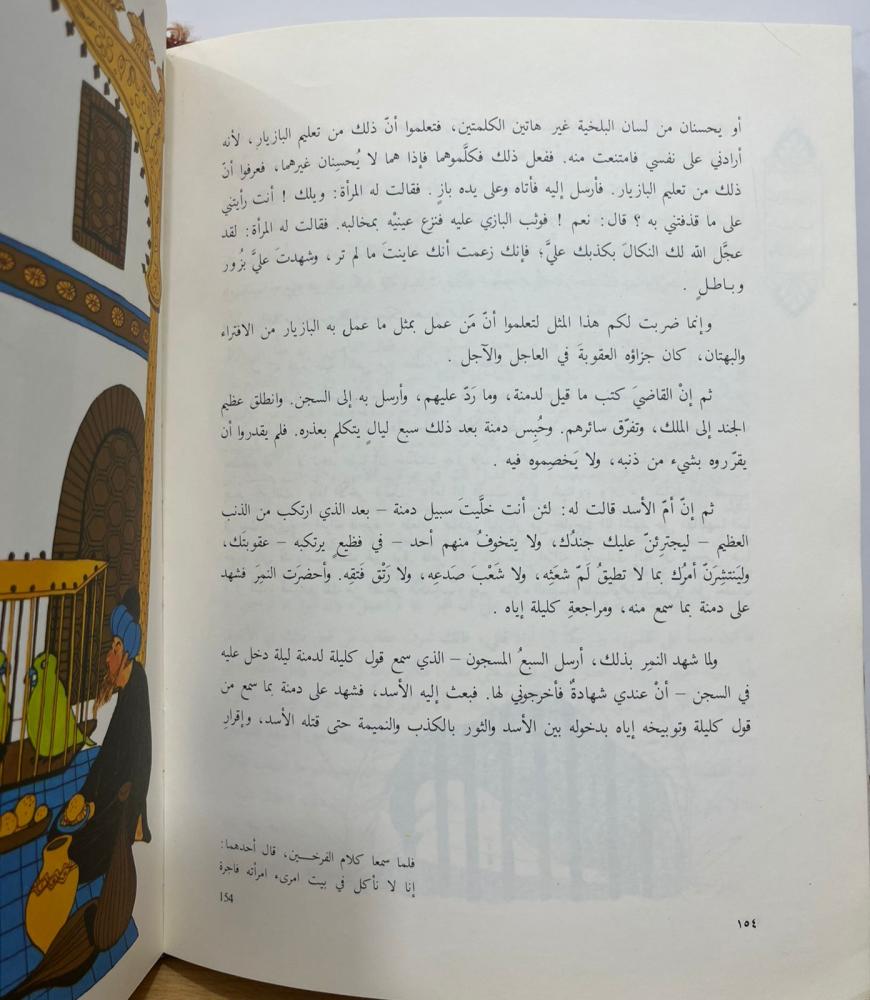 أو يحسنان من لسان البلخية غير هاتين الكلمتين، فتعلموا أنّ ذلك من تعليم البازيار، لأنه
أرادني على نفسي فامتنعت منه. ففعل ذلك فكلَّموهما فإذا هما لا يُحسِنان غيرهما، فعرفوا أنّ
ذلك من تعليم البازيار. فأرسل إليه فأتاه وعلى يده بازٍ. فقالت له المرأة: ويلك ! أنت رأيتني
على ما قذفتني به ؟ قال: نعم ! فوثب البازي عليه فنزع عينيْه بمخالبه. فقالت له المرأة: لقد
عجَّل الله لك النكالَ بكذبك عليَّ؛ فإنك زعمت أنك عاينتَ ما لم تر، وشهدتَ عليَّ بزُور
وباطلٍ .
وإنما ضربت لكم هذا المثل لتعلموا أنّ مَن عمل بمثل ما عمل به البازيار من الافتراء
والبهتان، كان جزاؤه العقوبةَ في العاجل والآجل .
ثم إنْ القاضيَ كتب ما قيل لدمنة، وما رَدّ عليهم، وأرسل به إلى السجن. وانطلق عظيم
الجند إلى الملك، وتفرّق سائرهم. وحُبِس دمنة بعد ذلك سبع ليالٍ يتكلم بعذره. فلم يقدروا أن
يقرّروه بشيء من ذنبه، ولا يَخصِموه فيه .
ثم إنّ أمّ الأسد قالت له: لئن أنت خلَّيتَ سبيل دمنة – بعد الذي ارتكب من الذنب
العظيم – ليجترِئنّ عليك جندُك، ولا يتخوفُ منهم أحد – في فظيعٍ يرتكبه – عقوبتَك،
وليَنتشِرَنّ أمرُك بما لا تطيقُ لَمّ شعَثِه، ولا شَعْبَ صَدعِه، ولا رَتْق فَتقِه. وأحضرَت النمِرَ فشهد
على دمنة بما سمع منه، ومراجعةِ كليلة إياه .
ولما شهد النمِر بذلك، أرسل السبعُ المسجون – الذي سمع قول كليلة لدمنة ليلة دخل عليه
في السجن – أنْ عندي شهادةٌ فأخرجوني لها. فبعث إليه الأسد، فشهد على دمنة بما سمع من
قول كليلة وتوبيخه إياه بدخوله بين الأسد والثور بالكذب والنميمة حتى قتله الأسد، وإقرارِ
فلما سمعا كلام الفرخـــين، قال أحدهما:
إنا لا نأكل في بيت امرىء امرأته فاجرة
154
١٥٤